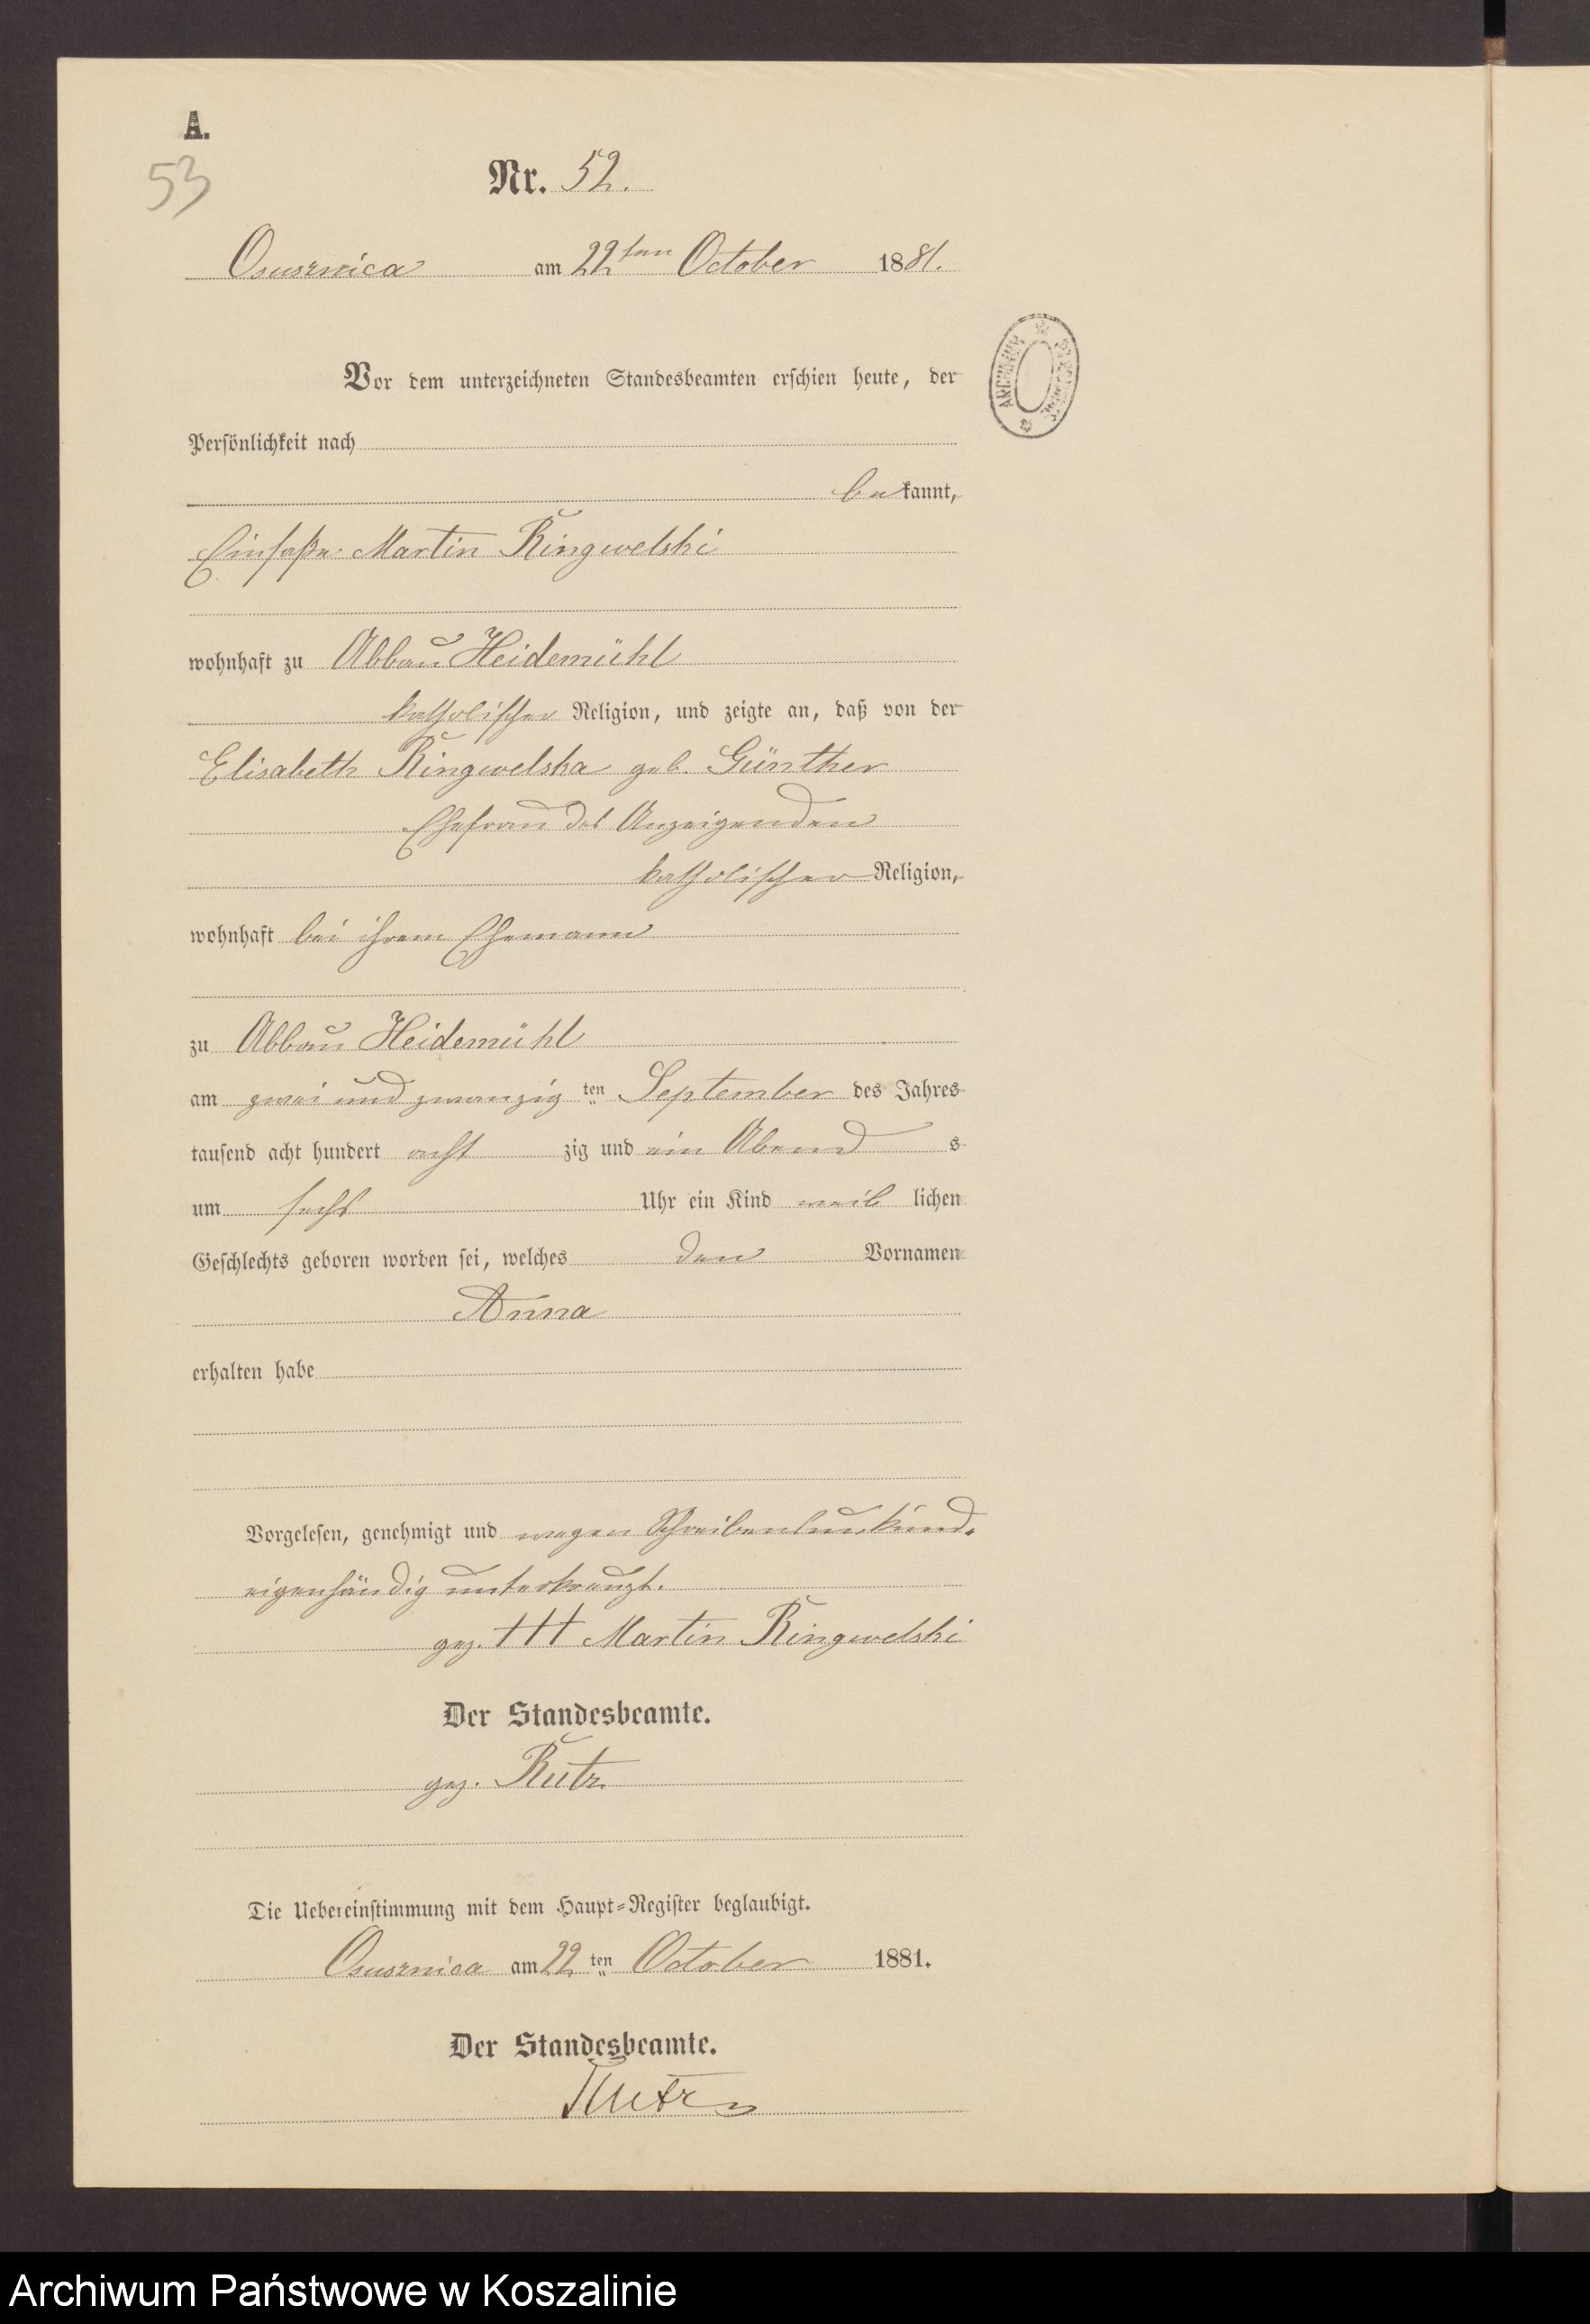 A.
53
Nr. 52.
Osusznica am 22ten October 1881.
Vor dem unterzeichneten Standesbeamten erschien heute, der
Persönlichkeit nach
bekannt,
Einsaße Martin Ringwelski
wohnhaft zu Abbau Heidemühl
katholischer Religion, und zeigte an, daß von der
Elisabeth Ringwelska geb. Günther
Ehefrau des Anzeigenden
katholischer Religion,
wohnhaft bei ihrem Ehemann
zu Abbau Heidemühl
am zwei und zwanzig ten September des Jahres
tausend acht hundert acht zig und ein Abend s
um sechs Uhr ein Kind weib lichen
Geschlechts geboren worden sei, welches den Vornamen
Anna
erhalten habe
Vorgelesen, genehmigt und wegen Schreibensunkund.
eigenhändig unterkreuzt.
gez. +++ Martin Ringwelski
Der Standesbeamte.
gez. Rutz
Die Uebereinstimmung mit dem Haupt-Register beglaubigt.
Osusznica am 22 ten October 1881.
Der Standesbeamte.
Rutz
Archiwum Państwowe w Koszalinie